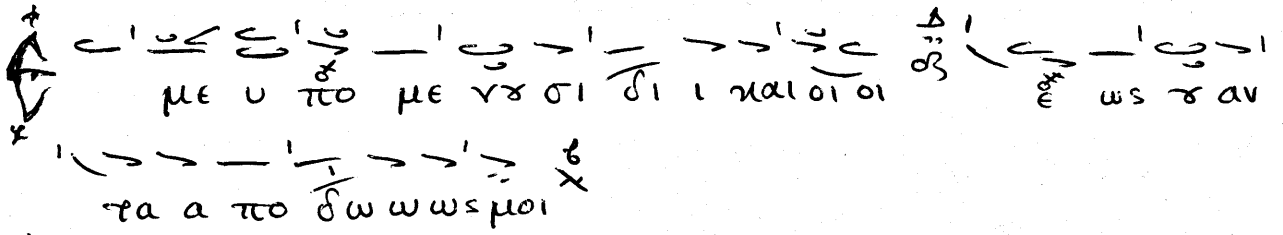 Ε με υ πο με νȣ σι δι ι και οι οι ε ως ȣ αν
τα α πο δω ω ως μοι